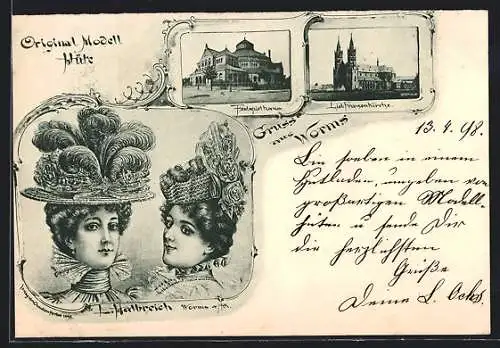 Original Modell
Hüte
Festspielhaus
Liebfrauenkirche.
Gruss
aus Worms
13.4.98.
Bin soeben in einem
Hutladen, umgeben von
großartigen Modell-
hüten u sende Dir
die herzlichsten
Grüße
Deine L. Ochs.
L. Halbreich Worms a/Rh.